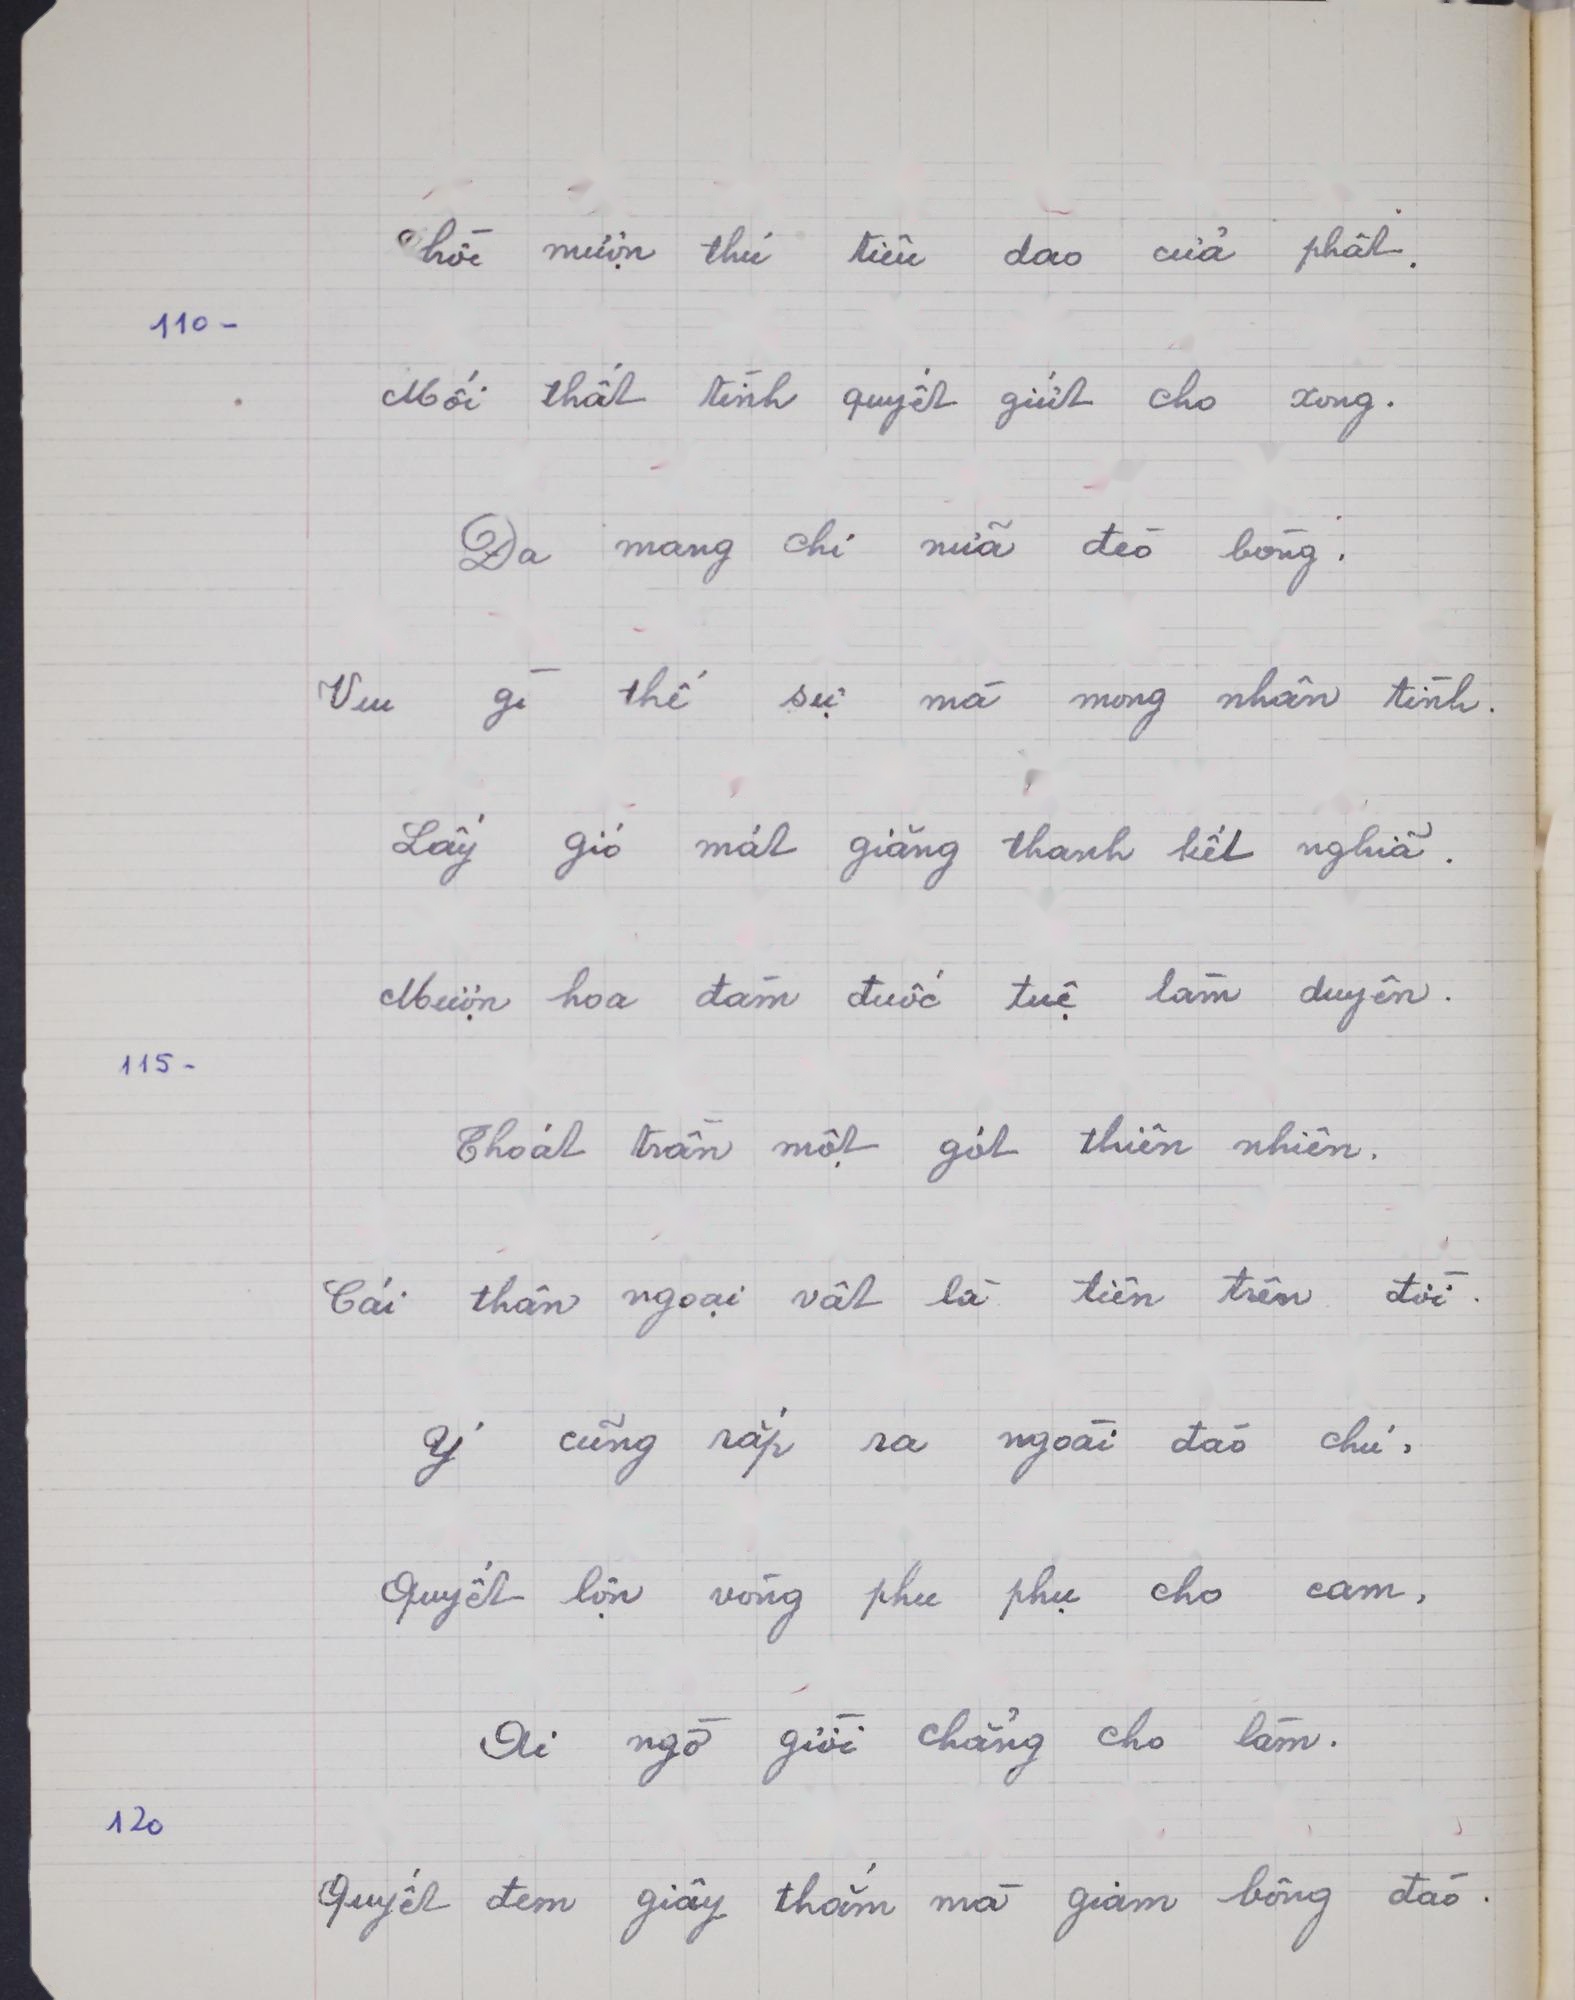 Thôì mượn thú tiêu dao cuả phật.
110 -
Mối thất tình quyết giứt cho xong.
Đa mang chi nữa đeò bòng.
Vui gì thế sự mà mong nhân tình.
Lấy gió mát giăng thanh kết nghiã.
Mượn hoa đàm đuốc tuệ làm duyên.
115 -
Thoát trần một gót thiên nhiên.
Cái thân ngoại vật là tiên trên đời.
Ý cũng rắp ra ngoài đaò chú,
Quyết lộn vòng phu phụ cho cam,
Ai ngờ giời chẳng cho làm.
120
Quyết đem giây thắm mà giam bông đaò.